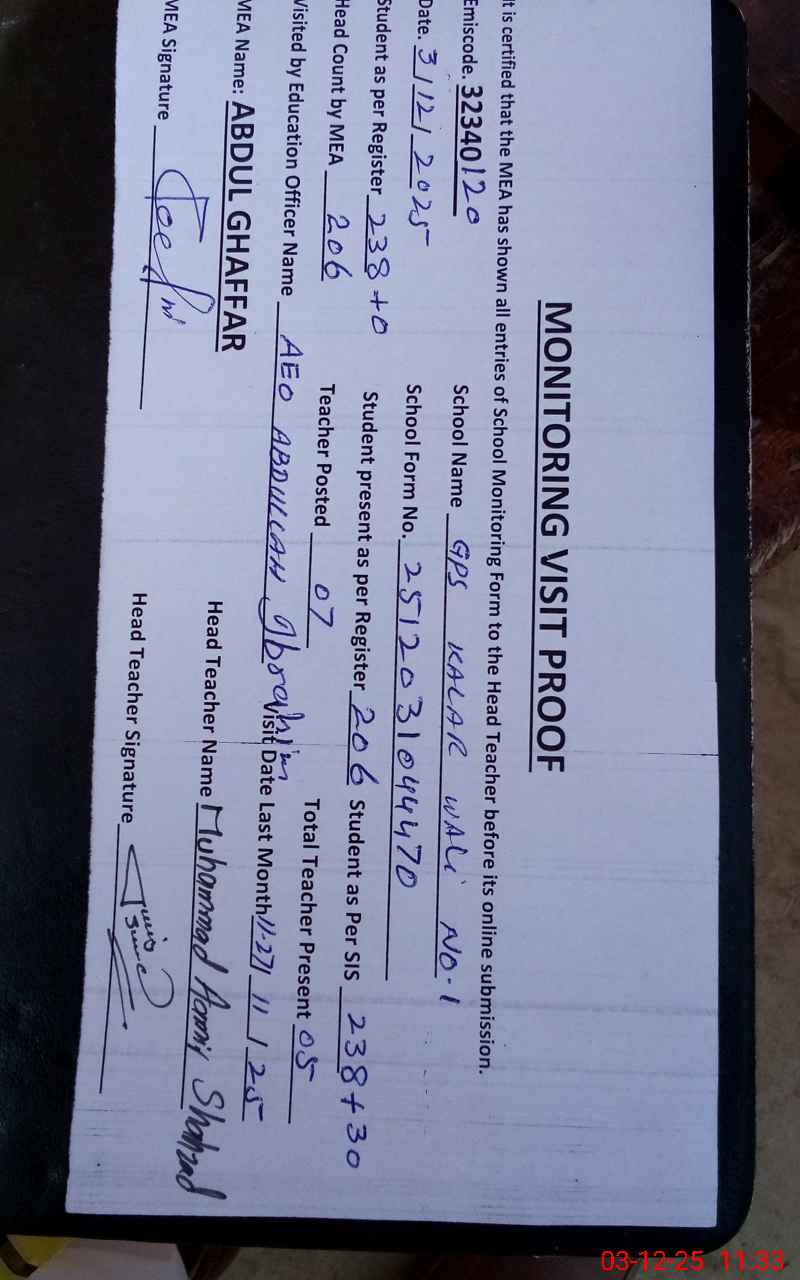 MONITORING VISIT PROOF
It is certified that the MEA has shown all entries of School Monitoring Form to the Head Teacher before its online submission.
Emiscode. 32340120 School Name GPS KALAR WALI NO.1
Date. 3/12/2025 School Form No. 2512031044470
Student as per Register 238+0 Student present as per Register 206 Student as Per SIS 238+30
Head Count by MEA 206 Teacher Posted 07 Total Teacher Present 05
Visited by Education Officer Name AEO ABDULLAH Ibrahim Visit Date Last Month 11-27/11/25
MEA Name: ABDUL GHAFFAR Head Teacher Name Muhammad Aamir Shahzad
MEA Signature Head Teacher Signature
03-12-25 11:33